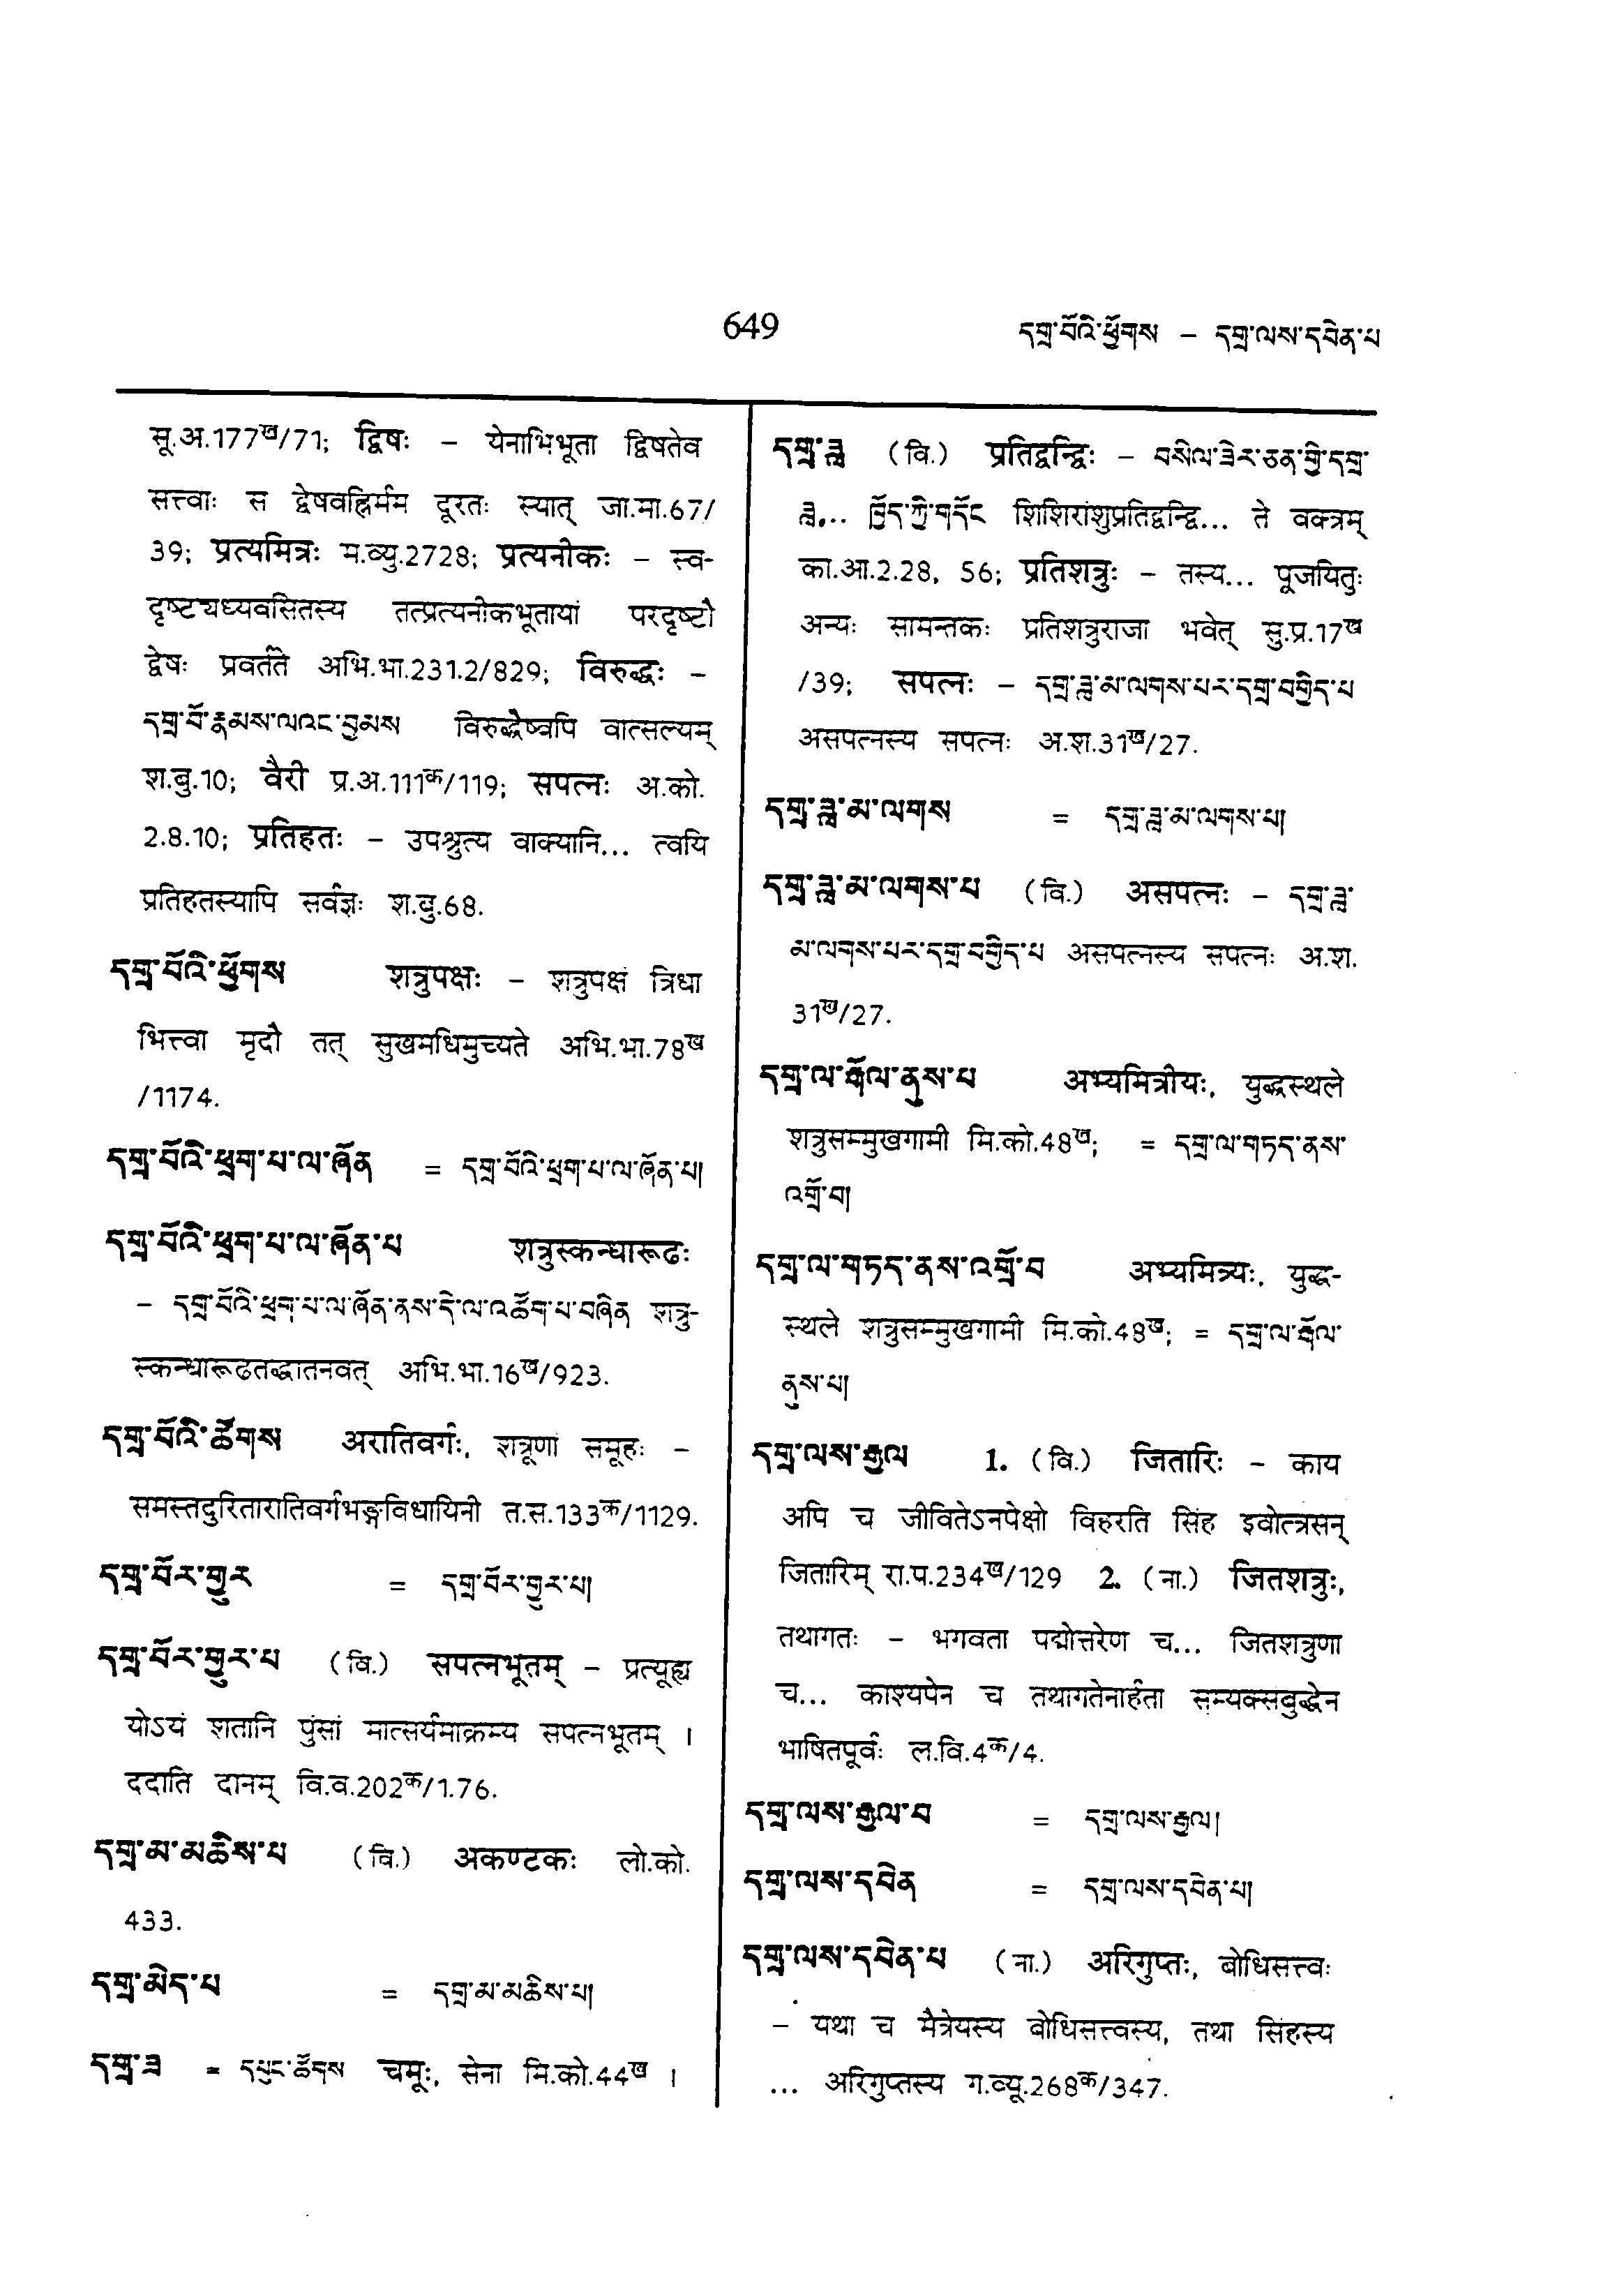 649
དགྲ་བོའི་ཕྱོགས – དགྲ་ལས་དབེན་པ
सू.अ.177ख/71; द्विषः – येनाभिभूता द्विषतेव
सत्त्वाः स द्वेषवह्निर्मम दूरतः स्यात् जा.मा.67/
39; प्रत्यमित्रः म.व्यु.2728; प्रत्यनीकः – स्व-
दृष्ट्यध्यवसितस्य तत्प्रत्यनीकभूतायां परदृष्टौ
द्वेषः प्रवर्तते अभि.भा.231.2/829; विरुद्धः –
དགྲ་བོ་རྣམས་ལའང་བྱམས विरुद्धेष्वपि वात्सल्यम्
श.बु.10; वैरी प्र.अ.111क/119; सपत्नः अ.को.
2.8.10; प्रतिहतः – उपश्रुत्य वाक्यानि... त्वयि
प्रतिहतस्यापि सर्वज्ञः श.बु.68.
དགྲ་བོའི་ཕྱོགས शत्रुपक्षः – शत्रुपक्षं त्रिधा
भित्त्वा मृदौ तत् सुखमधिमुच्यते अभि.भा.78ख
/1174.
དགྲ་བོའི་ཕྲག་པ་ལ་ཞོན = དགྲ་བོའི་ཕྲག་པ་ལ་ཞོན་པ།
དགྲ་བོའི་ཕྲག་པ་ལ་ཞོན་པ शत्रुस्कन्धारूढः
– དགྲ་བོའི་ཕྲག་པ་ལ་ཞོན་ནས་དེ་ལ་འཚོག་པ་བཞིན शत्रु-
स्कन्धारूढतद्घातनवत् अभि.भा.16ख/923.
དགྲ་བོའི་ཚོགས अरातिवर्गः, शत्रूणां समूहः –
समस्तदुरितारातिवर्गभङ्गविधायिनी त.स.133क/1129.
དགྲ་བོར་གྱུར = དགྲ་བོར་གྱུར་པ།
དགྲ་བོར་གྱུར་པ (वि.) सपत्नभूतम् – प्रत्यूह्य
योऽयं शतानि पुंसां मात्सर्यमाक्रम्य सपत्नभूतम् ।
ददाति दानम् वि.व.202क/1.76.
དགྲ་མ་མཆིས་པ (वि.) अकण्टकः लो.को.
433.
དགྲ་མེད་པ = དགྲ་མ་མཆིས་པ།
དགྲ་ཟ = དཔུང་ཚོགས चमूः, सेना मि.को.44ख ।
དགྲ་ཟླ (वि.) प्रतिद्वन्द्विः – བསིལ་ཟེར་ཅན་གྱི་དགྲ་
ཟླ... ཁྱོད་ཀྱི་གདོང शिशिरांशुप्रतिद्वन्द्वि... ते वक्त्रम्
का.आ.2.28, 56; प्रतिशत्रुः – तस्य... पूजयितुः
अन्यः सामन्तकः प्रतिशत्रुराजा भवेत् सु.प्र.17ख
/39; सपत्नः – དགྲ་ཟླ་མ་ལགས་པར་དགྲ་བགྱིད་པ
असपत्नस्य सपत्नः अ.श.31ख/27.
དགྲ་ཟླ་མ་ལགས = དགྲ་ཟླ་མ་ལགས་པ།
དགྲ་ཟླ་མ་ལགས་པ (वि.) असपत्नः – དགྲ་ཟླ་
མ་ལགས་པར་དགྲ་བགྱིད་པ असपत्नस्य सपत्नः अ.श.
31ख/27.
དགྲ་ལ་རྒོལ་ནུས་པ अभ्यमित्रीयः, युद्धस्थले
शत्रुसम्मुखगामी मि.को.48ख; = དགྲ་ལ་གཏད་ནས་
འགྲོ་བ།
དགྲ་ལ་གཏད་ནས་འགྲོ་བ अभ्यमित्र्यः, युद्ध-
स्थले शत्रुसम्मुखगामी मि.को.48ख; = དགྲ་ལ་རྒོལ་
ནུས་པ།
དགྲ་ལས་རྒྱལ 1. (वि.) जितारिः – काय
अपि च जीवितेऽनपेक्षो विहरति सिंह इवोत्त्रसन्
जितारिम् रा.प.234ख/129 2. (ना.) जितशत्रुः,
तथागतः – भगवता पद्मोत्तरेण च... जितशत्रुणा
च... काश्यपेन च तथागतेनार्हता सम्यक्संबुद्धेन
भाषितपूर्वः ल.वि.4क/4.
དགྲ་ལས་རྒྱལ་བ = དགྲ་ལས་རྒྱལ།
དགྲ་ལས་དབེན = དགྲ་ལས་དབེན་པ།
དགྲ་ལས་དབེན་པ (ना.) अरिगुप्तः, बोधिसत्त्वः
– यथा च मैत्रेयस्य बोधिसत्त्वस्य, तथा सिंहस्य
... अरिगुप्तस्य ग.व्यू.268क/347.